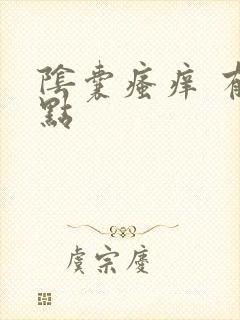 陰囊瘙痒
點
虞宗慶